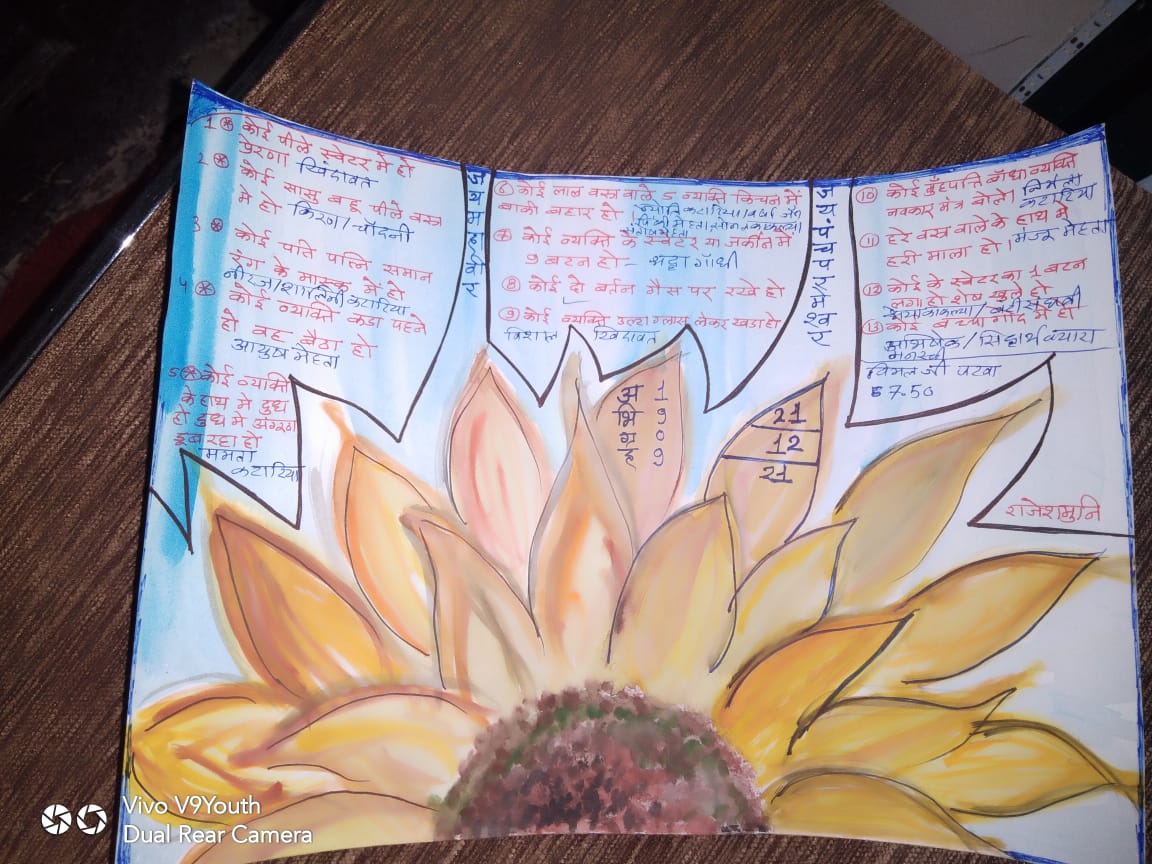 1 * कोई पीले स्वेटर मे हो
प्रेरणा खिंदावत
2 * कोई सासु बहू पीले वस्त्र
मे हो किरण/चाँदनी
3 * कोई पति पत्नि समान
रंग के मास्क मे हो
नीरज/शालिनी कटारिया
4 * कोई व्यक्ति कडा पहने
हो वह बैठा हो
आयुष मेहता
5 * कोई व्यक्ति
के हाथ मे दुध
हो दुध मे अंगरा
डूब रहा हो
ममता
कटारिया
जय महावीर
6 कोई लाल वस्त्र वाले 5 व्यक्ति किचन मे
बाकी बहार हो
7 कोई व्यक्ति के स्वेटर या जर्कीन मे
9 बटन हो - श्रद्धा गाँधी
8 कोई दो बर्तन गैस पर रखे हो
9 कोई व्यक्ति उल्टा ग्लास लेकर खडा हो
विशाल खिंदावत
जय पंचपरमेश्वर
10 कोई मुँहपत्ति बाँधा व्यक्ति
नवकार मंत्र बोले निर्मला
कटारिया
11 हरे वस्त्र वाले के हाथ मे
हरी माला हो। मंजू मेहता
12 कोई के स्वेटर का 1 बटन
लगा हो शेष खुले हो
13 कोई बच्चा गोद मे हो
अभिषेक/सिद्धार्थ
विमल जी पटवा
7.50
अभिग्रह
1909
21
12
21
राजेशमुनि
Vivo V9Youth
Dual Rear Camera